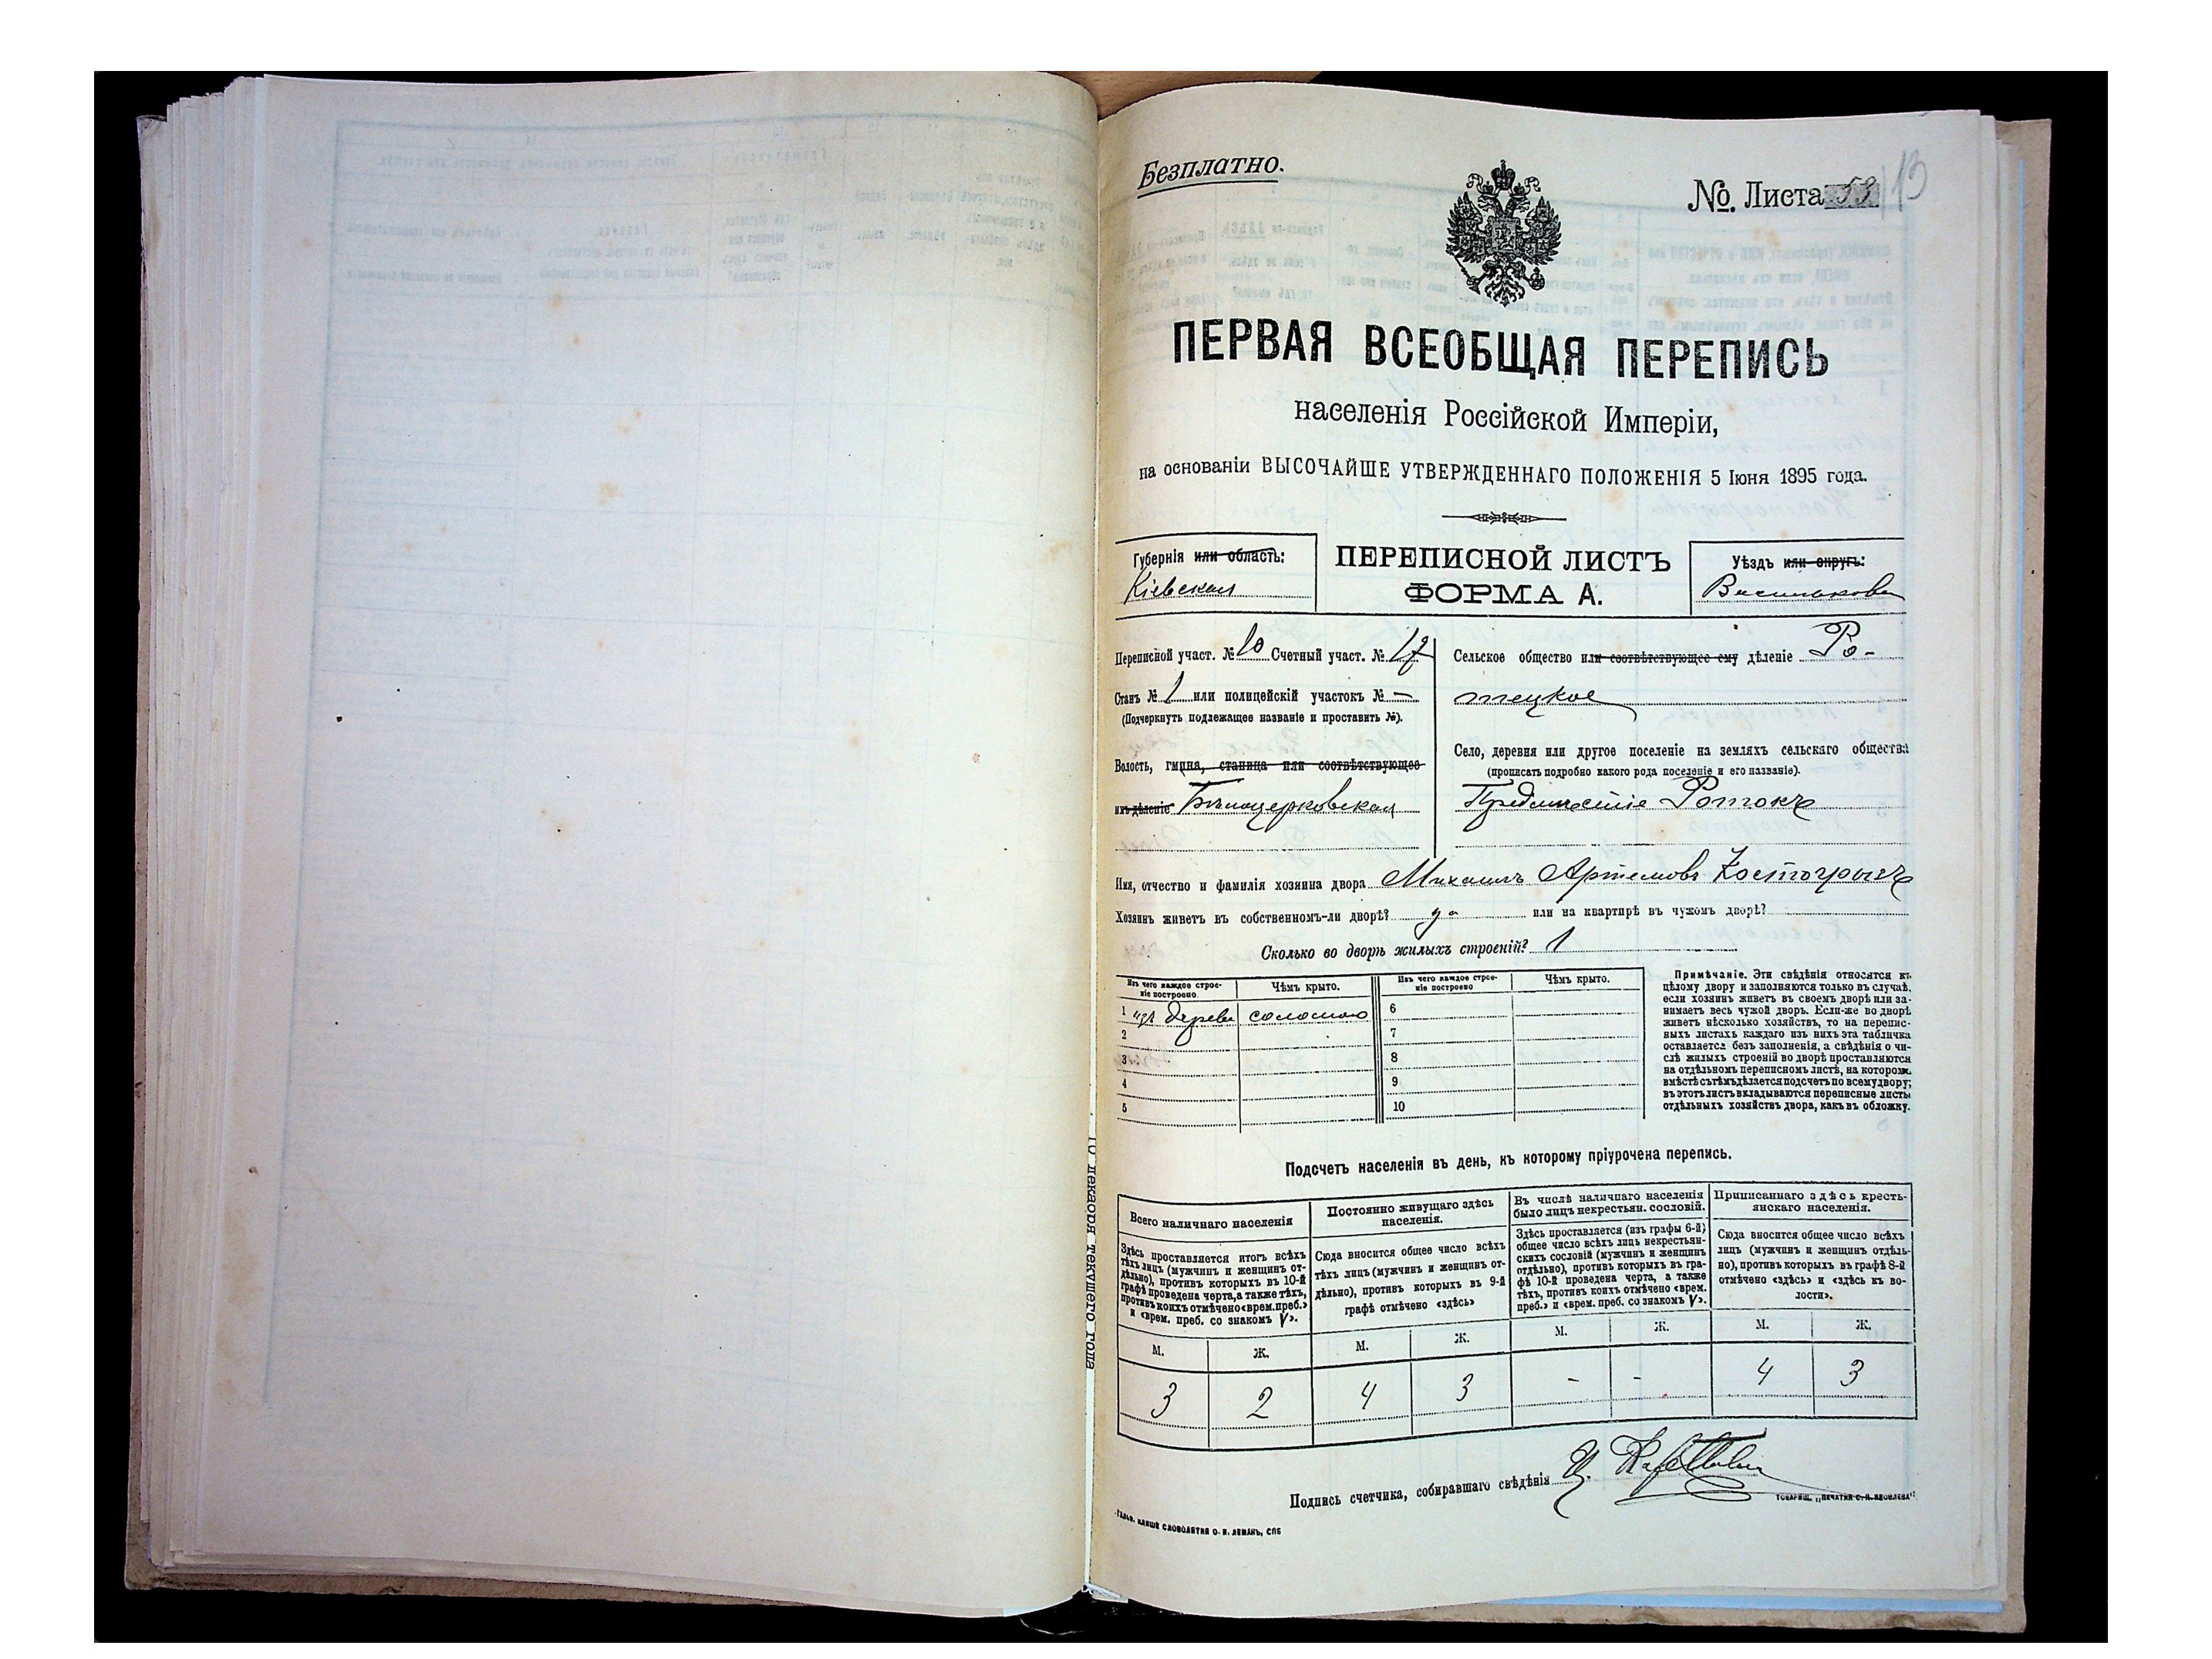 Безплатно.
№. Листа 53 13
ПЕРВАЯ ВСЕОБЩАЯ ПЕРЕПИСЬ
населенія Россійской Имперіи,
на основаніи ВЫСОЧАЙШЕ УТВЕРЖДЕННАГО ПОЛОЖЕНІЯ 5 Іюня 1895 года.
Губернія или область:
Кіевская
ПЕРЕПИСНОЙ ЛИСТЪ
ФОРМА А.
Уѣздъ или округъ:
Васильков
Переписной участ. № 10 Счетный участ. № 17
Станъ № 1 или полицейскій участокъ № —
(Подчеркнуть подлежащее названіе и проставить №).
Волость, гмина, станица или соотвѣтствующее
имъ дѣленіе Бѣлоцерковская
Сельское общество или соотвѣтствующее ему дѣленіе Ро-
тецкое
Село, деревня или другое поселеніе на земляхъ сельскаго общества
(прописать подробно какого рода поселеніе и его названіе).
Предмѣстіе Ротокъ
Имя, отчество и фамилія хозяина двора Михаилъ Артемовъ Костогрызъ
Хозяинъ живетъ въ собственномъ-ли дворѣ? да или на квартирѣ въ чужомъ дворѣ?
Сколько во дворѣ жилыхъ строеній? 1
Изъ чего каждое строе-
ніе построено
Чѣмъ крыто.
Изъ чего каждое строе-
ніе построено
Чѣмъ крыто.
1 изъ дерева соломою 6
2 7
3 8
4 9
5 10
Примѣчаніе. Эти свѣдѣнія относятся къ
цѣлому двору и заполняются только въ случаѣ,
если хозяинъ живетъ въ своемъ дворѣ или за-
нимаетъ весь чужой дворъ. Если-же во дворѣ
живетъ нѣсколько хозяйствъ, то на перепис-
ныхъ листахъ каждаго изъ нихъ эта табличка
оставляется безъ заполненія, а свѣдѣнія о чи-
слѣ жилыхъ строеній во дворѣ проставляются
на отдѣльномъ переписномъ листѣ, на которомъ
вмѣстѣ съ тѣмъ дѣлается подсчетъ по всему двору;
въ этотъ листъ вкладываются переписные листы
отдѣльныхъ хозяйствъ двора, какъ въ обложку.
Подсчетъ населенія въ день, къ которому пріурочена перепись.
Всего наличнаго населенія
Здѣсь проставляется итогъ всѣхъ
тѣхъ лицъ (мужчинъ и женщинъ от-
дѣльно), противъ которыхъ въ 10-й
графѣ проведена черта, а также тѣхъ,
противъ коихъ отмѣчено «врем. преб.»
и «врем. преб. со знакомъ V».
Постоянно живущаго здѣсь
населенія.
Сюда вносится общее число всѣхъ
тѣхъ лицъ (мужчинъ и женщинъ от-
дѣльно), противъ которыхъ въ 9-й
графѣ отмѣчено «здѣсь»
Въ числѣ наличнаго населенія
было лицъ некрестьян. сословій.
Здѣсь проставляется (изъ графы 6-й)
общее число всѣхъ лицъ некрестьян-
скихъ сословій (мужчинъ и женщинъ
отдѣльно), противъ которыхъ въ гра-
фѣ 10-й проведена черта, а также
тѣхъ, противъ коихъ отмѣчено «врем.
преб.» и «врем. преб. со знакомъ V».
Приписаннаго здѣсь кресть-
янскаго населенія.
Сюда вносится общее число всѣхъ
лицъ (мужчинъ и женщинъ отдѣль-
но), противъ которыхъ въ графѣ 8-й
отмѣчено «здѣсь» и «здѣсь къ во-
лости».
М. Ж. М. Ж. М. Ж. М. Ж.
3 2 4 3 - - 4 3
Подпись счетчика, собиравшаго свѣдѣнія
ТОВАРИЩ. „ПЕЧАТНЯ С. П. ЯКОВЛЕВА“
ГАЛЬВ. КЛИШЕ СЛОВОЛИТНЯ О. И. ЛЕМАНЪ, СПБ
декабря текущего года